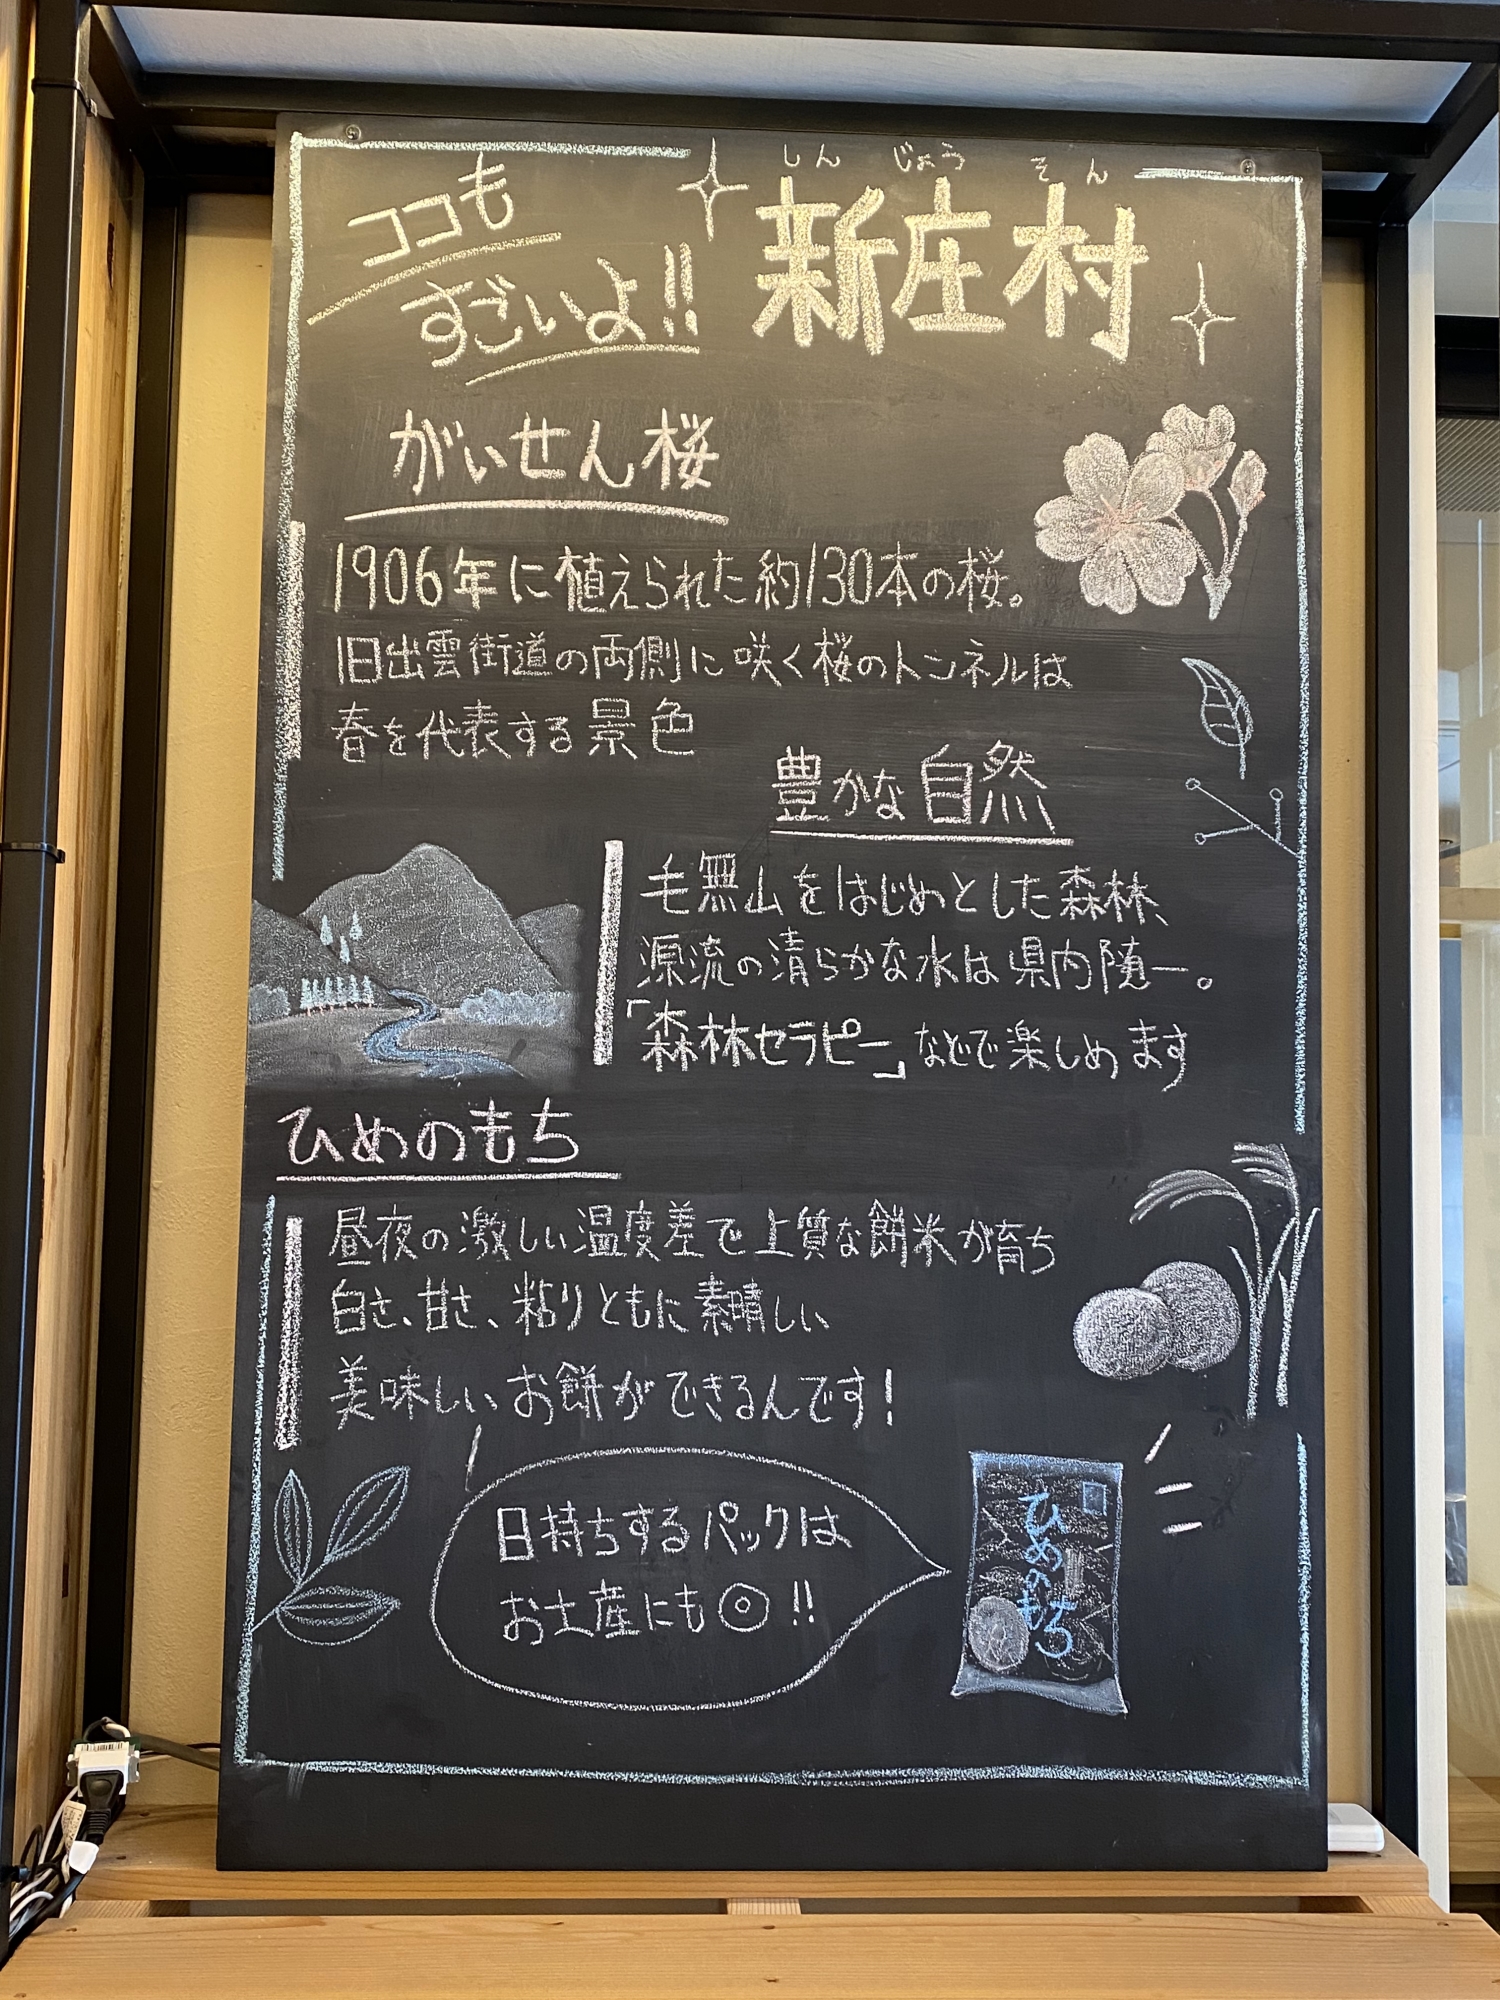 ココも
すごいよ!!
しんじょうそん
新庄村
がいせん桜
1906年に植えられた約130本の桜。
旧出雲街道の両側に咲く桜のトンネルは
春を代表する景色
豊かな自然
毛無山をはじめとした森林、
源流の清らかな水は県内随一。
「森林セラピー」などで楽しめます
ひめのもち
昼夜の激しい温度差で上質な餅米が育ち
白さ、甘さ、粘りともに素晴しい
美味しいお餅ができるんです!
日持ちするパックは
お土産にも◎!!
ひめのもち